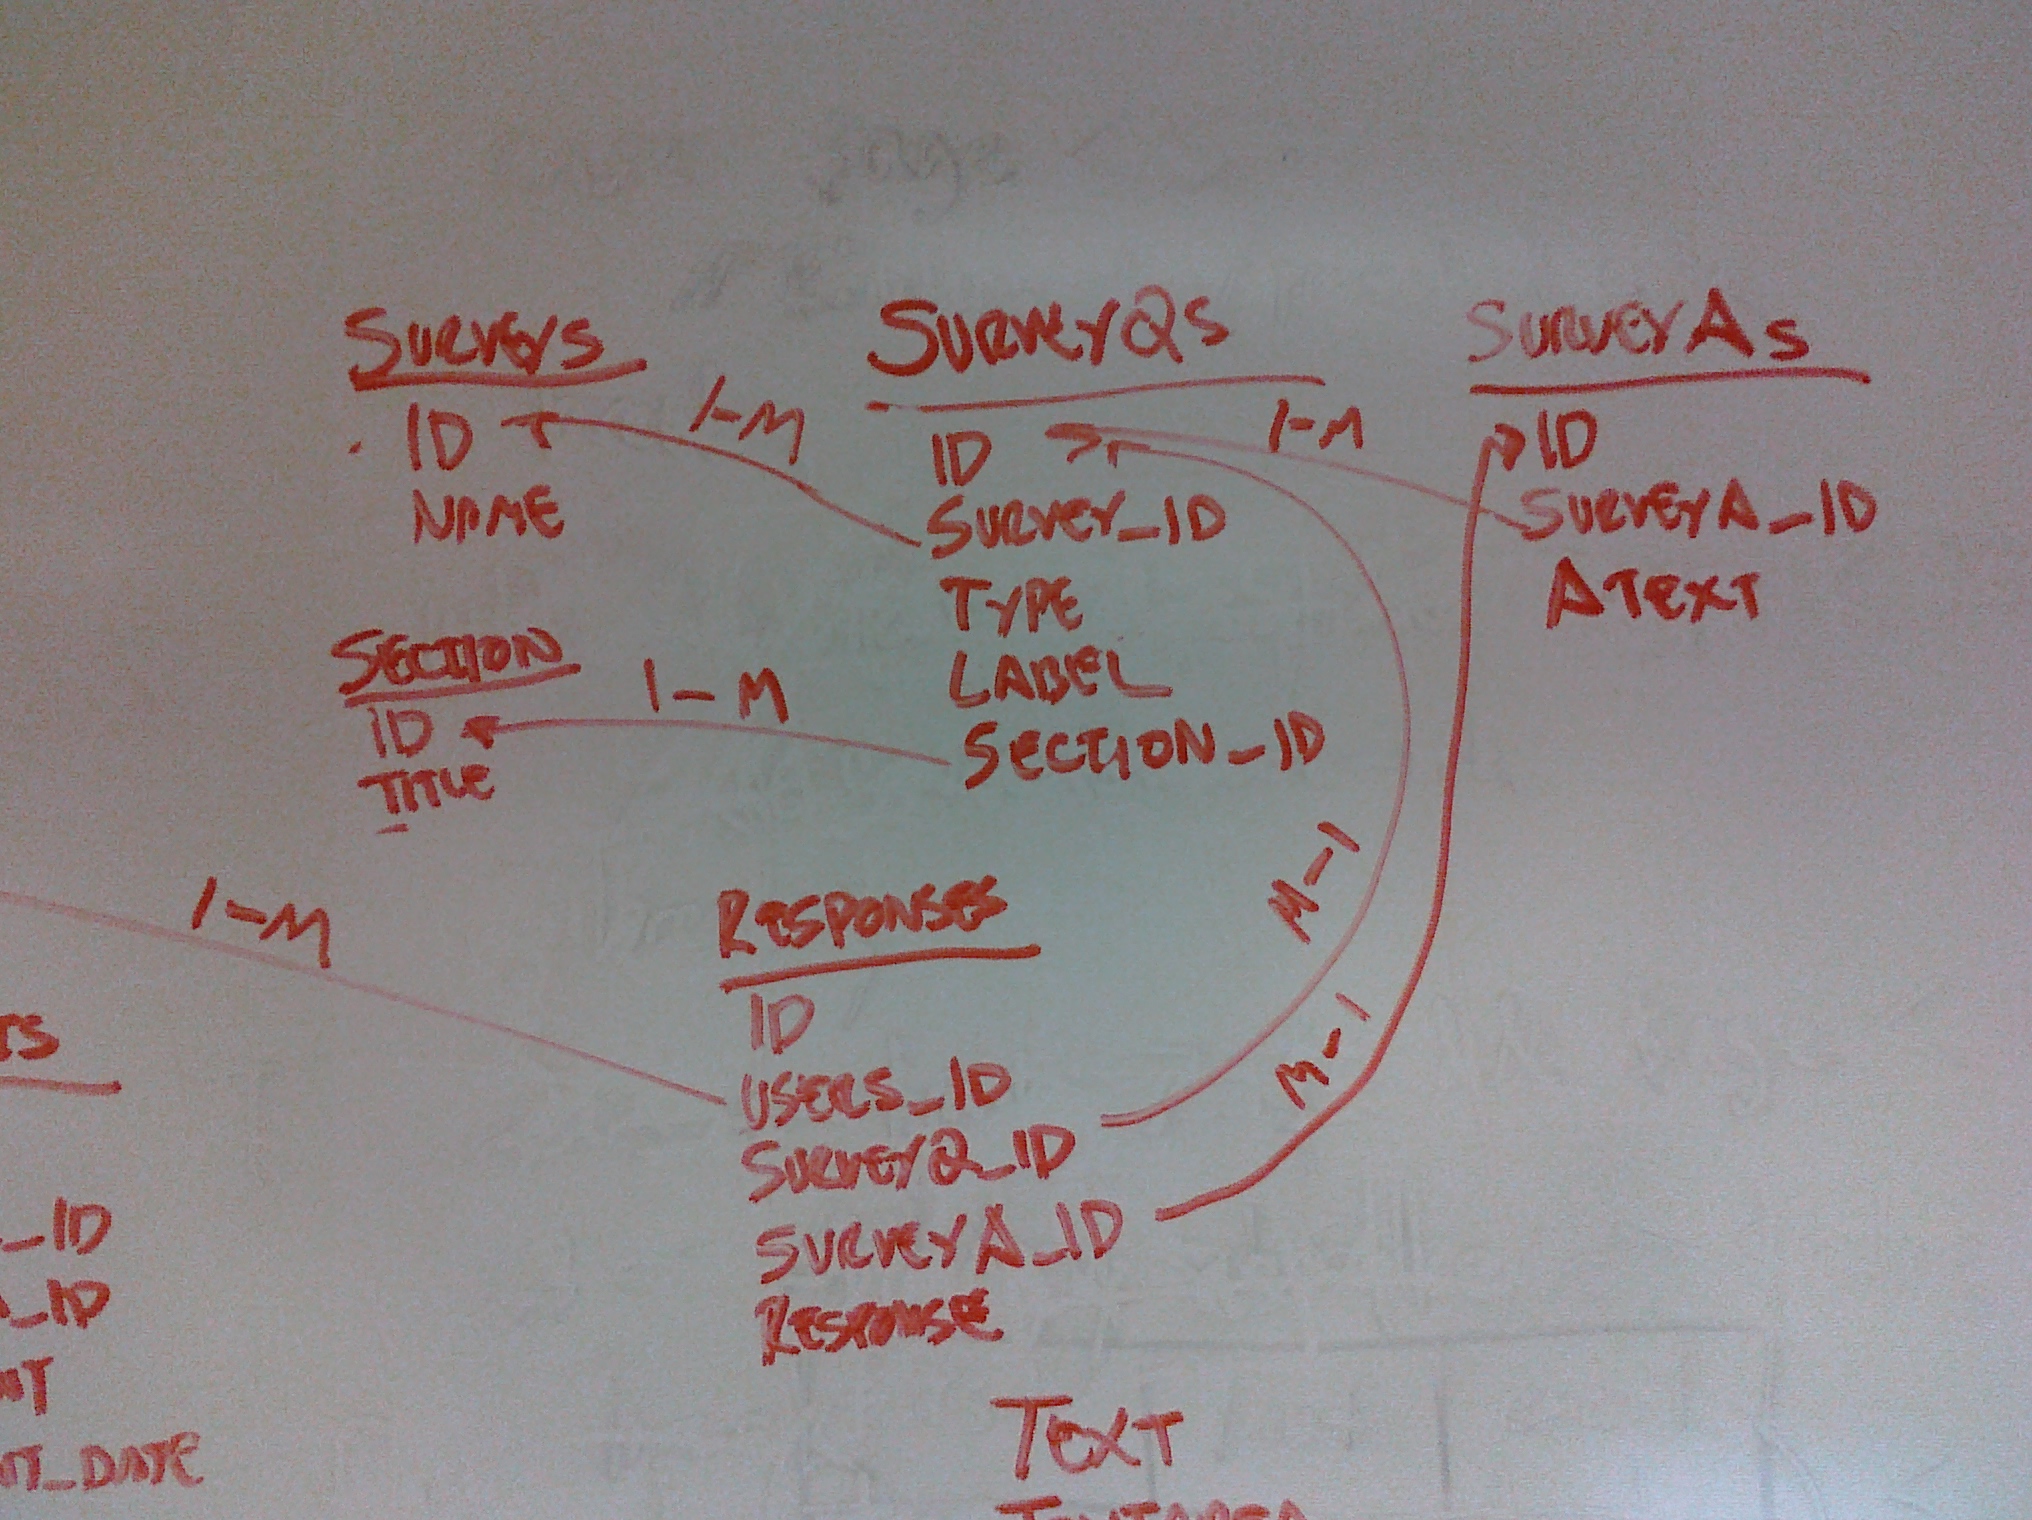 SURVEYS
ID
NAME
1-M
SURVEYQS
ID
SURVEY_ID
TYPE
LABEL
SECTION_ID
1-M
SURVEYAS
ID
SURVEYA_ID
ATEXT
SECTION
ID
TITLE
1-M
1-M
RESPONSES
ID
USERS_ID
SURVEYQ_ID
SURVEYA_ID
RESPONSE
M-1
M-1
TS
_ID
_ID
NT
NT_DATE
TEXT
TEXTAREA